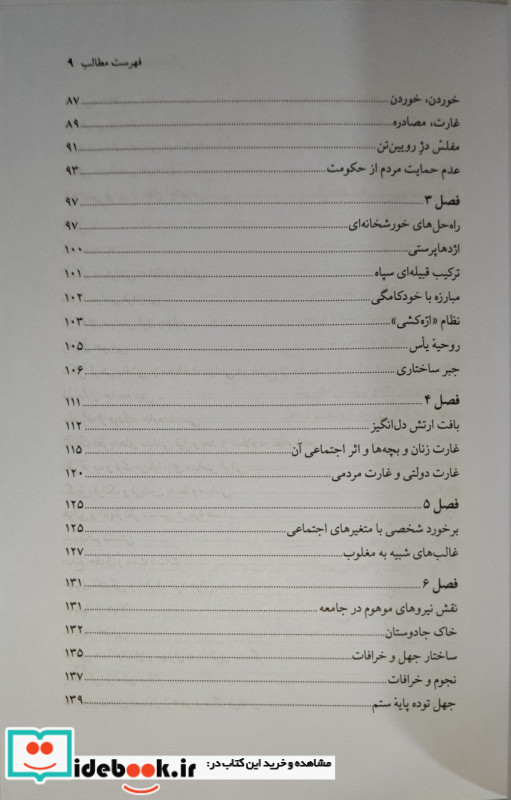 فهرست مطالب ۹
خوردن، خوردن ۸۷
غارت، مصادره ۸۹
مفلسْ دژِ رویین‌تن ۹۱
عدم حمایت مردم از حکومت ۹۳
فصل ۳ ۹۷
راه‌حل‌های خورشخانه‌ای ۹۷
اژدهاپرستی ۱۰۰
ترکیب قبیله‌ای سپاه ۱۰۱
مبارزه با خودکامگی ۱۰۲
نظام «ارّه‌کشی» ۱۰۳
روحیهٔ یأس ۱۰۵
جبر ساختاری ۱۰۶
فصل ۴ ۱۱۱
بافت ارتش دل‌انگیز ۱۱۲
غارت زنان و بچه‌ها و اثر اجتماعی آن ۱۱۵
غارت دولتی و غارت مردمی ۱۲۰
فصل ۵ ۱۲۵
برخورد شخصی با متغیرهای اجتماعی ۱۲۵
غالب‌های شبیه به مغلوب ۱۲۷
فصل ۶ ۱۳۱
نقش نیروهای موهوم در جامعه ۱۳۱
خاک جادوستان ۱۳۲
ساختار جهل و خرافات ۱۳۵
نجوم و خرافات ۱۳۷
جهل توده پایهٔ ستم ۱۳۹
مشاهده و خرید این کتاب در:
idebook.ir